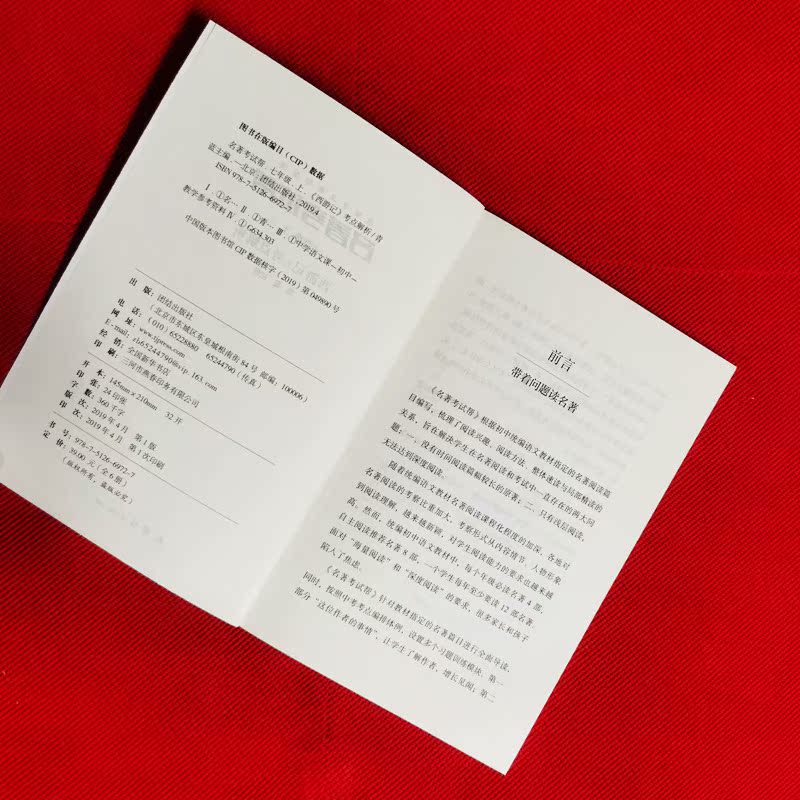 图书在版编目(CIP)数据
名著考试帮. 七年级. 上. 《西游记》考点解析/青
蓝主编. —北京:团结出版社,2019.4
ISBN 978-7-5126-6972-7
Ⅰ. ①名… Ⅱ. ①青… Ⅲ. ①中学语文课—初中—
教学参考资料 Ⅳ. ①G634.303
中国版本图书馆CIP数据核字(2019)第049890号
出 版:团结出版社
(北京市东城区东皇城根南街84号 邮编:100006)
电 话:(010)65228880 65244790(传真)
网 址:www.tjpress.com
E-mail:zb65244790@vip.163.com
经 销:全国新华书店
印 刷:三河市燕春印务有限公司
开 本:145mm×210mm 32开
印 张:24印张
字 数:360千字
版 次:2019年4月 第1版
印 次:2019年4月 第1次印刷
书 号:978-7-5126-6972-7
定 价:39.00元(全6册)
(版权所有,盗版必究)
前言
带着问题读名著
《名著考试帮》根据初中统编语文教材指定的名著阅读篇
目编写,梳理了阅读兴趣、阅读方法、整体速读与局部精读的
关系,旨在解决学生在名著阅读和考试中一直存在的两大问
题:一、没有时间阅读篇幅较长的原著;二、只有浅层阅读,
无法达到深度阅读。
随着统编语文教材名著阅读课程化程度的加深,各地对
名著阅读的考察比重加大,考察形式从内容情节、人物形象
到阅读理解,越来越新颖,对学生阅读能力的要求也越来越
高。然而,统编初中语文教材中,每个年级必读名著4部,
自主阅读推荐名著8部,一个学生每年至少要读12部名著。
面对“海量阅读”和“深度阅读”的要求,很多家长和孩子
陷入了焦虑。
《名著考试帮》针对教材指定的名著篇目进行全面导读,
同时,按照中考考点编排体例,设置多个习题训练模块。第一
部分“这位作者的事情”,让学生了解作者,增长见闻;第二